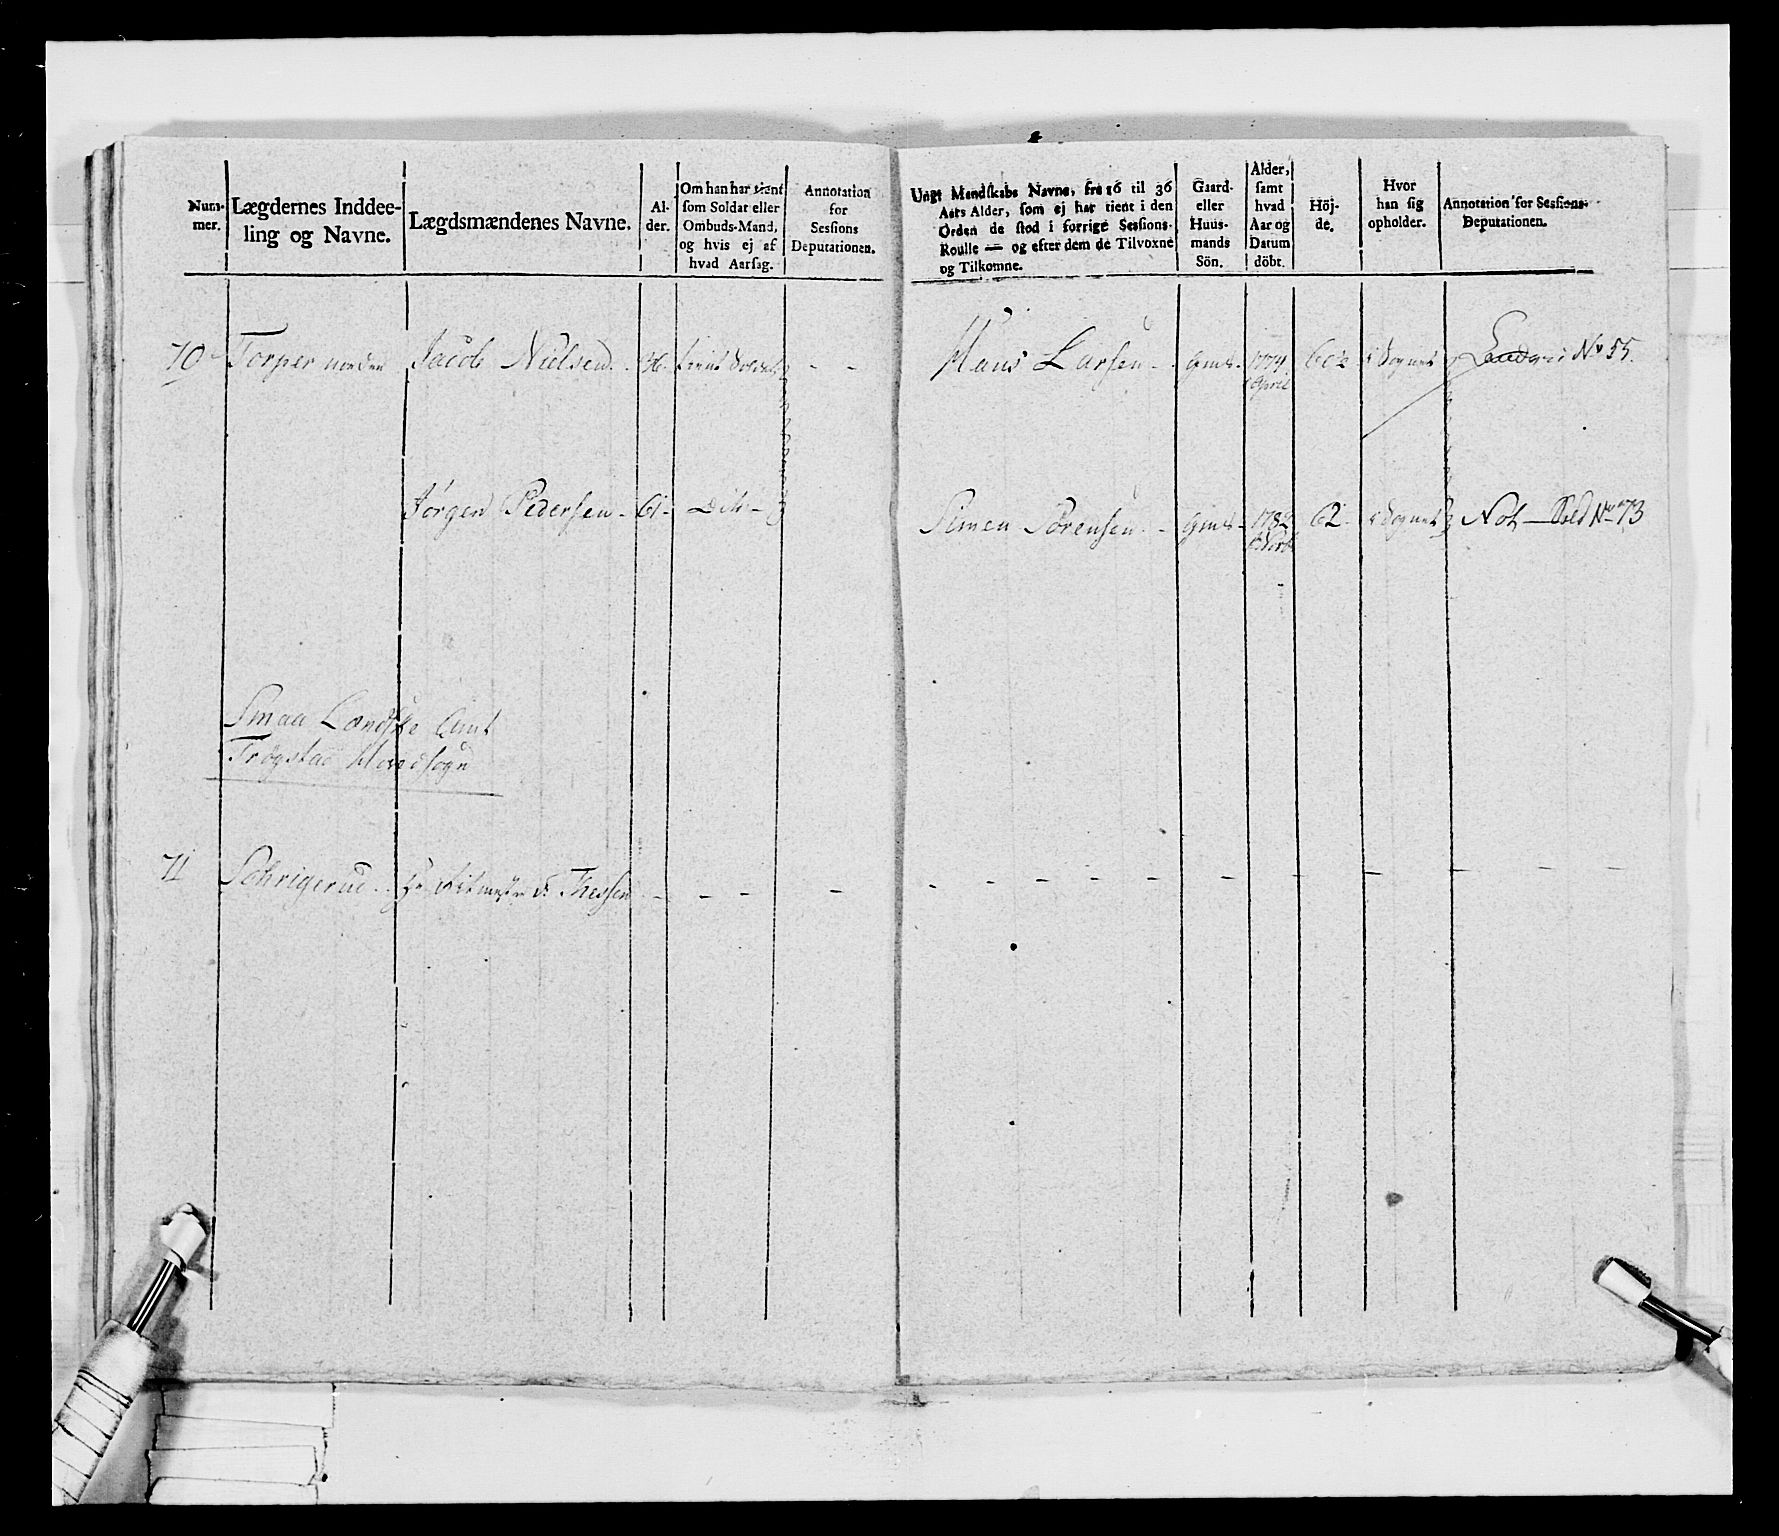 Num-
mer.
Lægdernes Inddee-
ling og Navne.
Lægdsmændenes Navne.
Al-
der.
Om han har tient
som Soldat eller
Ombuds-Mand,
og hvis ej af
hvad Aarsag.
Annotation
for
Sessions
Deputationen.
Ungt Mandskabs Navne, fra 16 til 36
Aars Alder, som ej har tient i den
Orden de stod i forrige Sessions-
Roulle — og efter dem de Tilvoxne
og Tilkomne.
Gaard-
eller
Huus-
mands
Sön.
Alder,
samt
hvad
Aar og
Datum
döbt.
Höj-
de.
Hvor
han sig
opholder.
Annotation for Sessions-
Deputationen.
70 Torper norden Jacob Nielsen - 36 - tient Soldat - - Hans Larsen - - Gmds - 1774 April 60½ i Sognet No 55.
Jørgen Pedersen - 61 - Dito - Simen Sørensen - - Gmds - 1782 62 - i Sognet Not - Sold No 73
Smaa Lændske Amt
Trøgstad Hovedsogn
71 Hr Ritmester d: Thessen - - - -